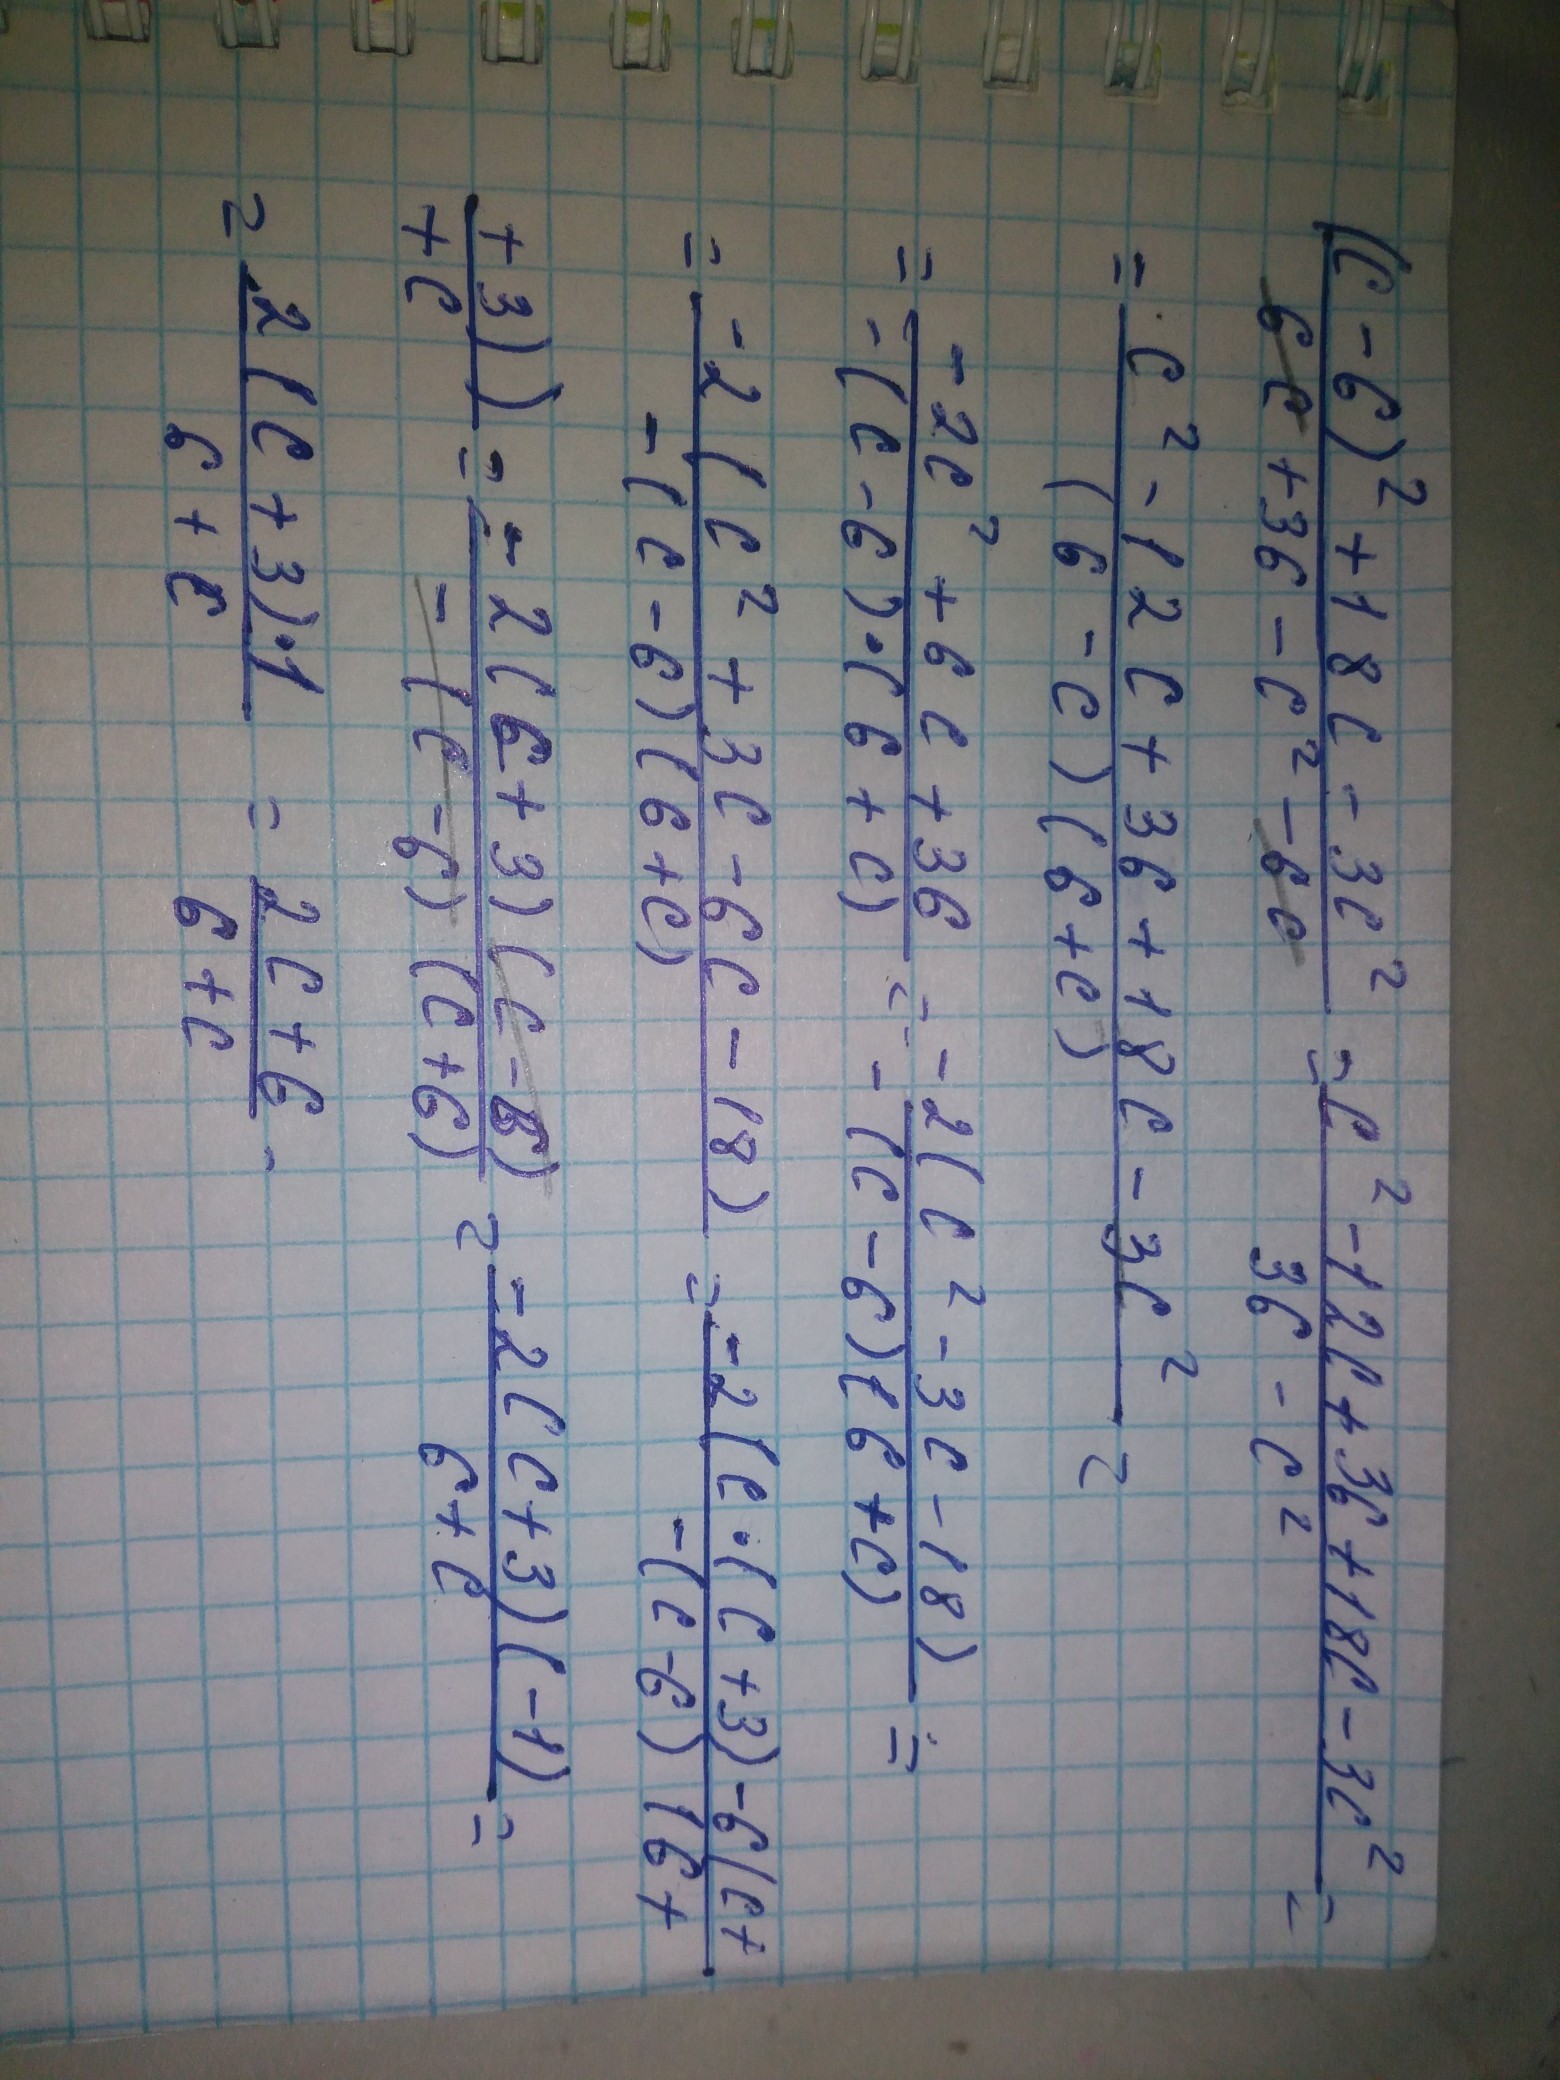 (c-6)²+18c-3c² / 6c+36-c²-6c = c²-12c+36+18c-3c² / 36-c² =
= c²-12c+36+18c-3c² / (6-c)(6+c) =
= -2c²+6c+36 / -(c-6)·(6+c) = -2(c²-3c-18) / -(c-6)(6+c) =
= -2(c²+3c-6c-18) / -(c-6)(6+c) = -2(c·(c+3)-6(c+ / -(c-6)(6+
+3)) / +c = -2(c+3)(c-6) / -(c-6)(c+6) = -2(c+3)(-1) / 6+c =
= 2(c+3)·1 / 6+c = 2c+6 / 6+c.